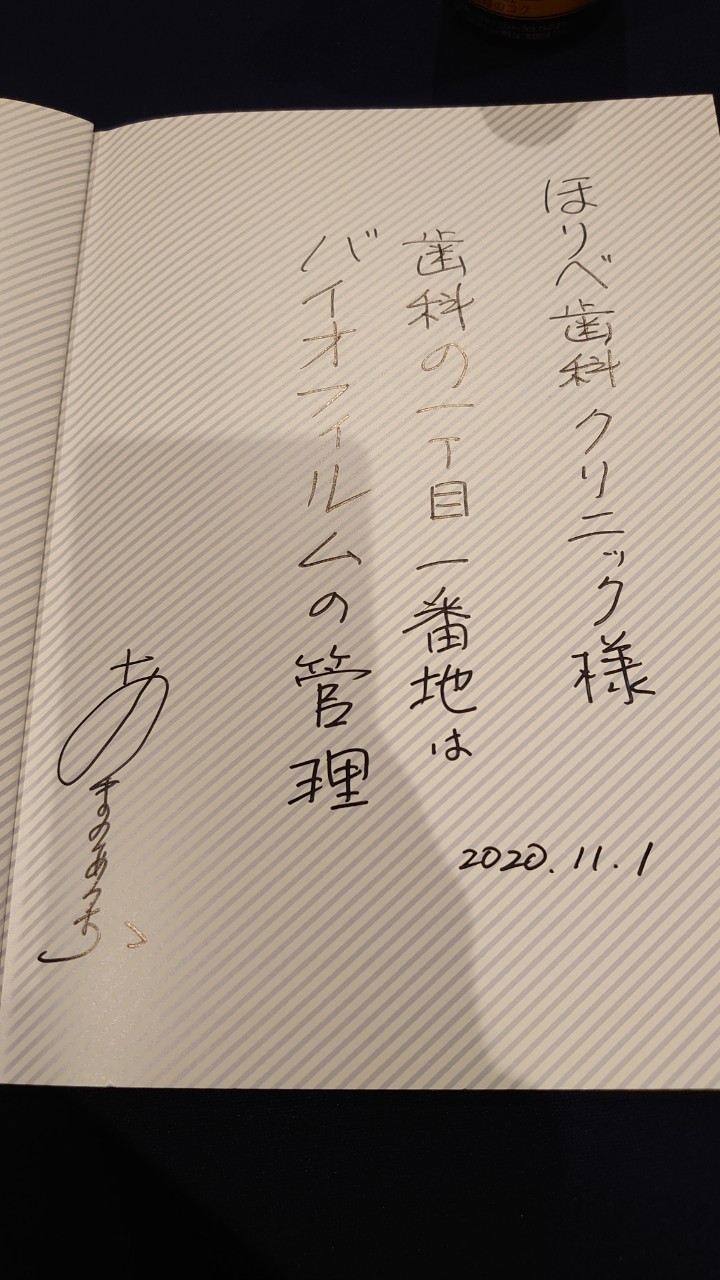 ほりべ歯科クリニック様
歯科の一丁目一番地は
バイオフィルムの管理
2020.11.1